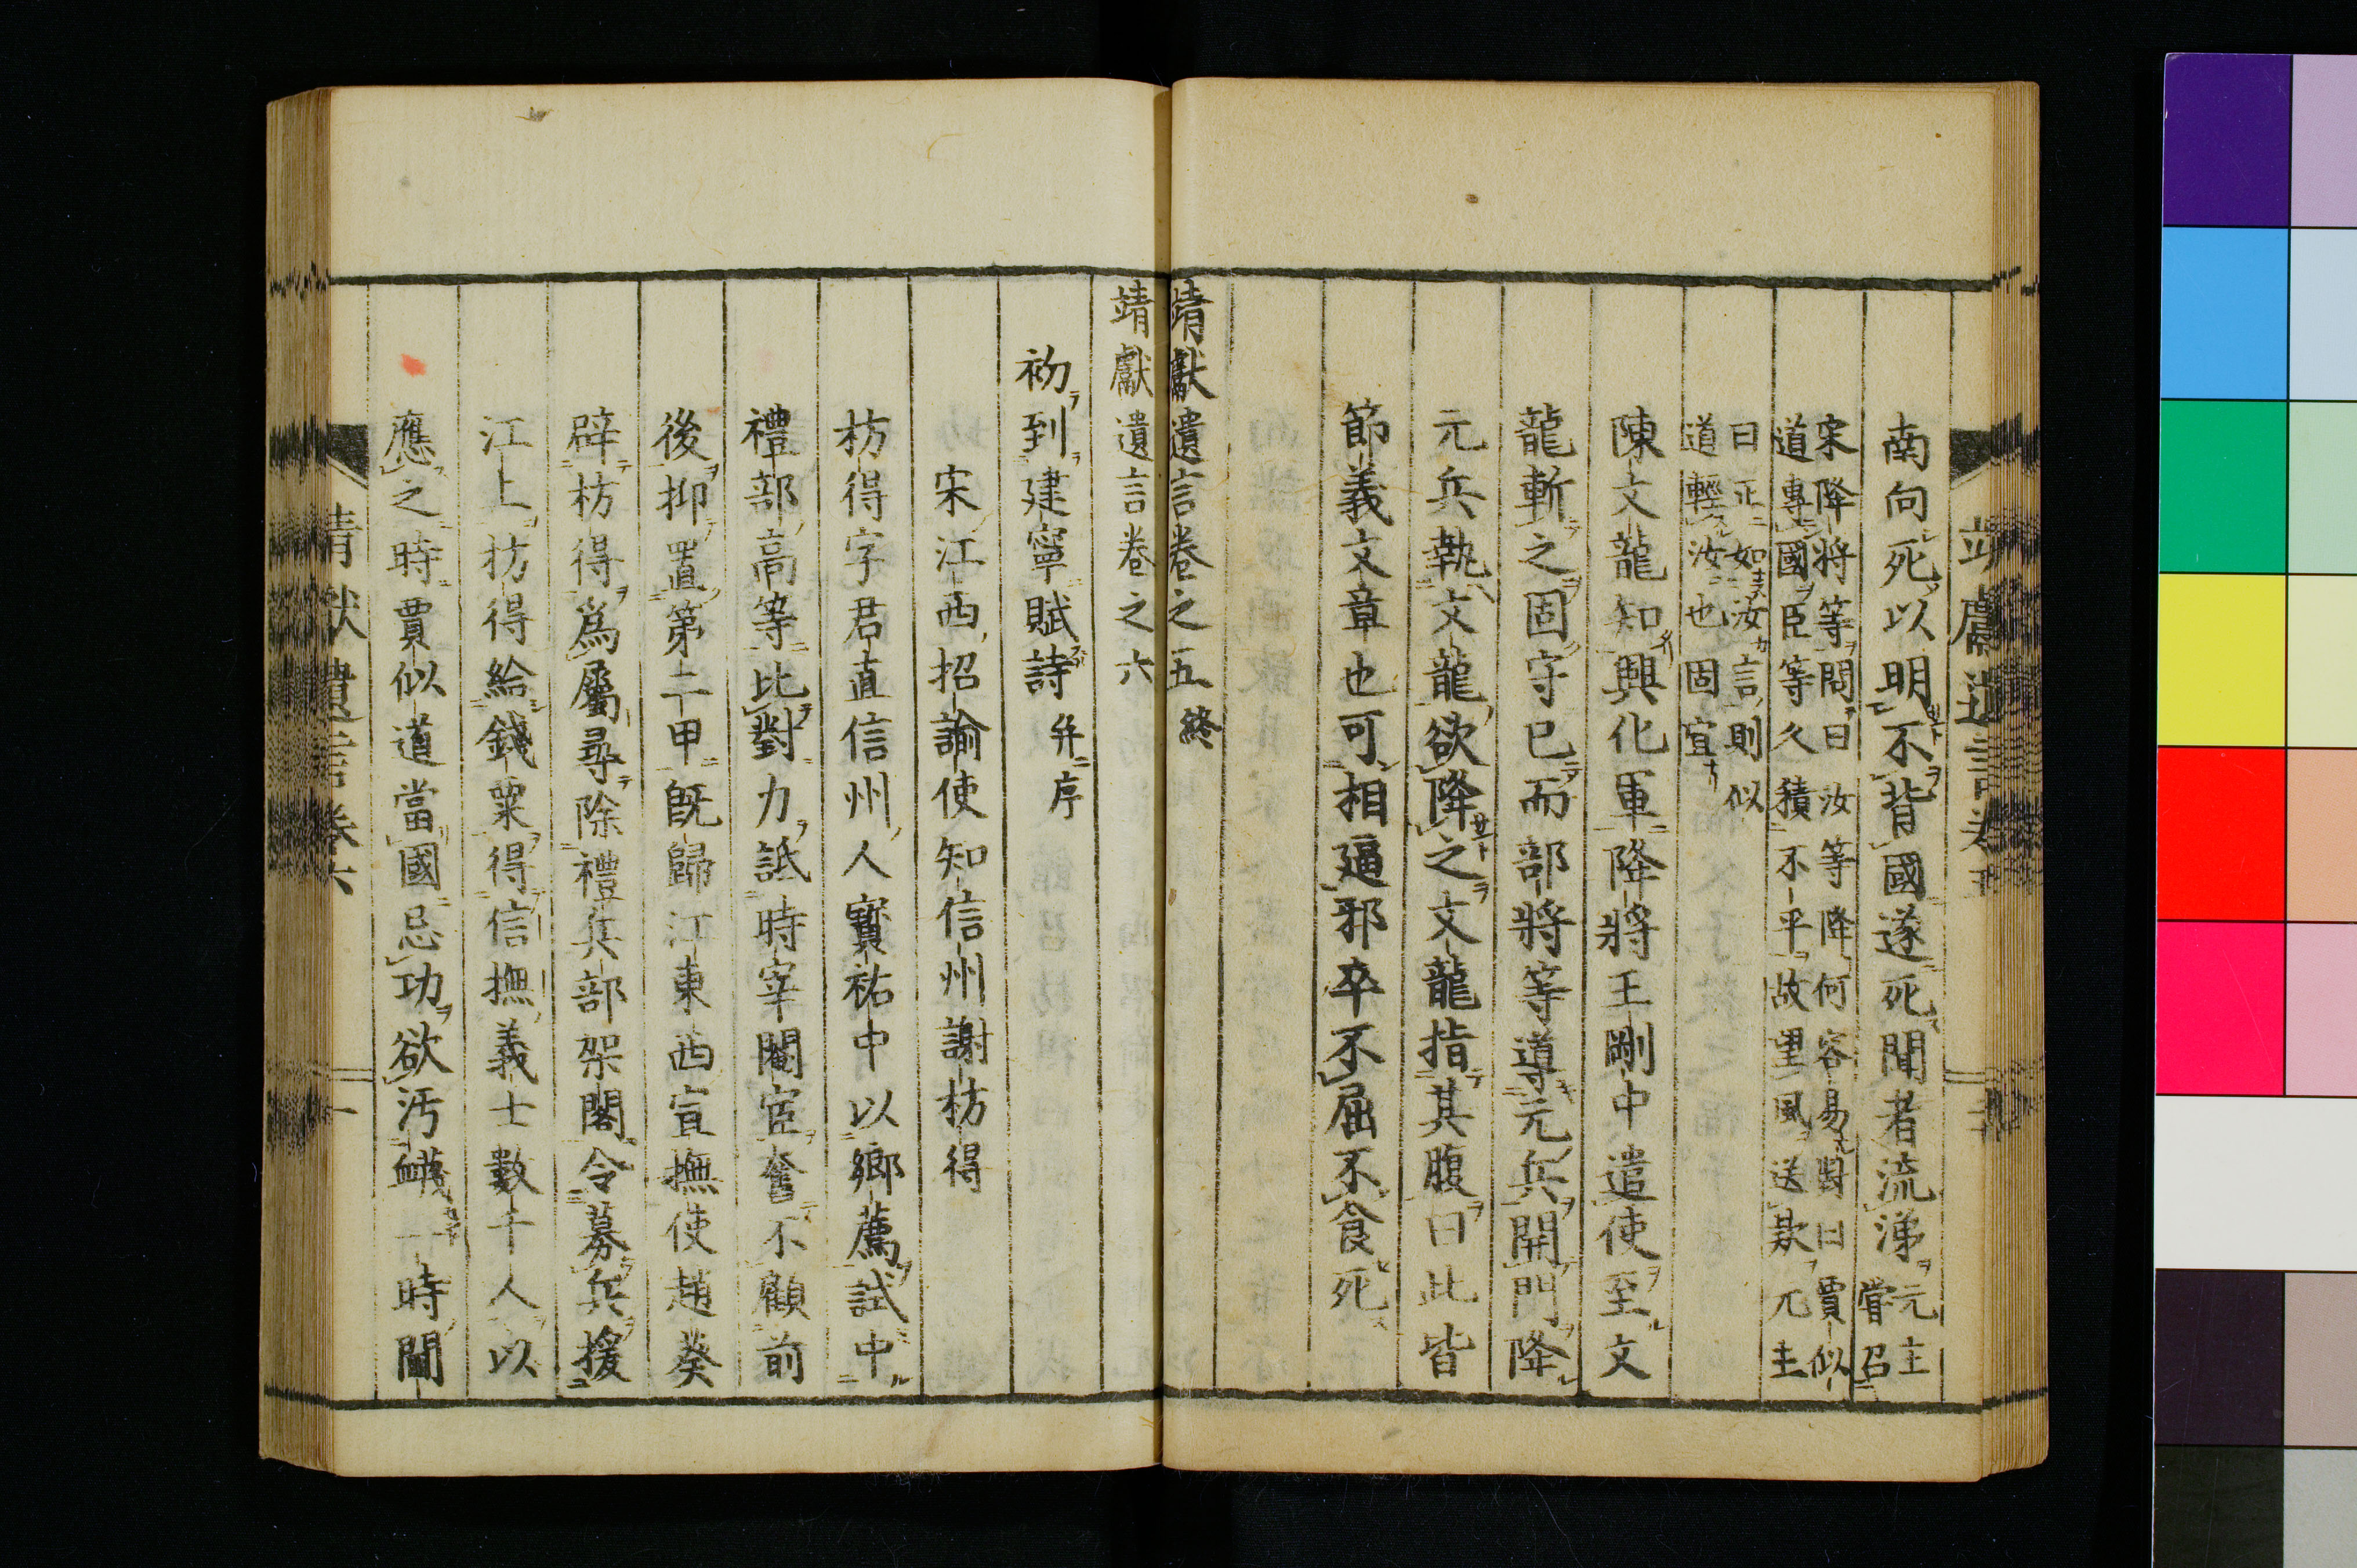 南向死以明不背國遂死聞者流涕元主
嘗召
宋降將等問曰汝等降何容易對曰賈似
道專國臣等久積不平故望風送欵元主
曰正如汝言則似
道輕汝也固宜
陳文龍知興化軍降將王剛中遣使至文
龍斬之固守已而部將等導元兵開門降
元兵執文龍欲降之文龍指其腹曰此皆
節義文章也可相逼邪卒不屈不食死
靖獻遺言卷之五 終
靖獻遺言卷之六
初到建寧賦詩 并序
宋江西招諭使知信州謝枋得
枋得字君直信州人寶祐中以鄉薦試中
禮部高等比對力詆時宰閹宦奮不顧前
後抑置第二甲既歸江東西宣撫使趙葵
辟枋得爲屬尋除禮兵部架閣令募兵援
江上枋得給錢粟得信撫義士數千人以
應之時賈似道當國忌功欲汚衊一時閫
靖獻遺言卷六 一